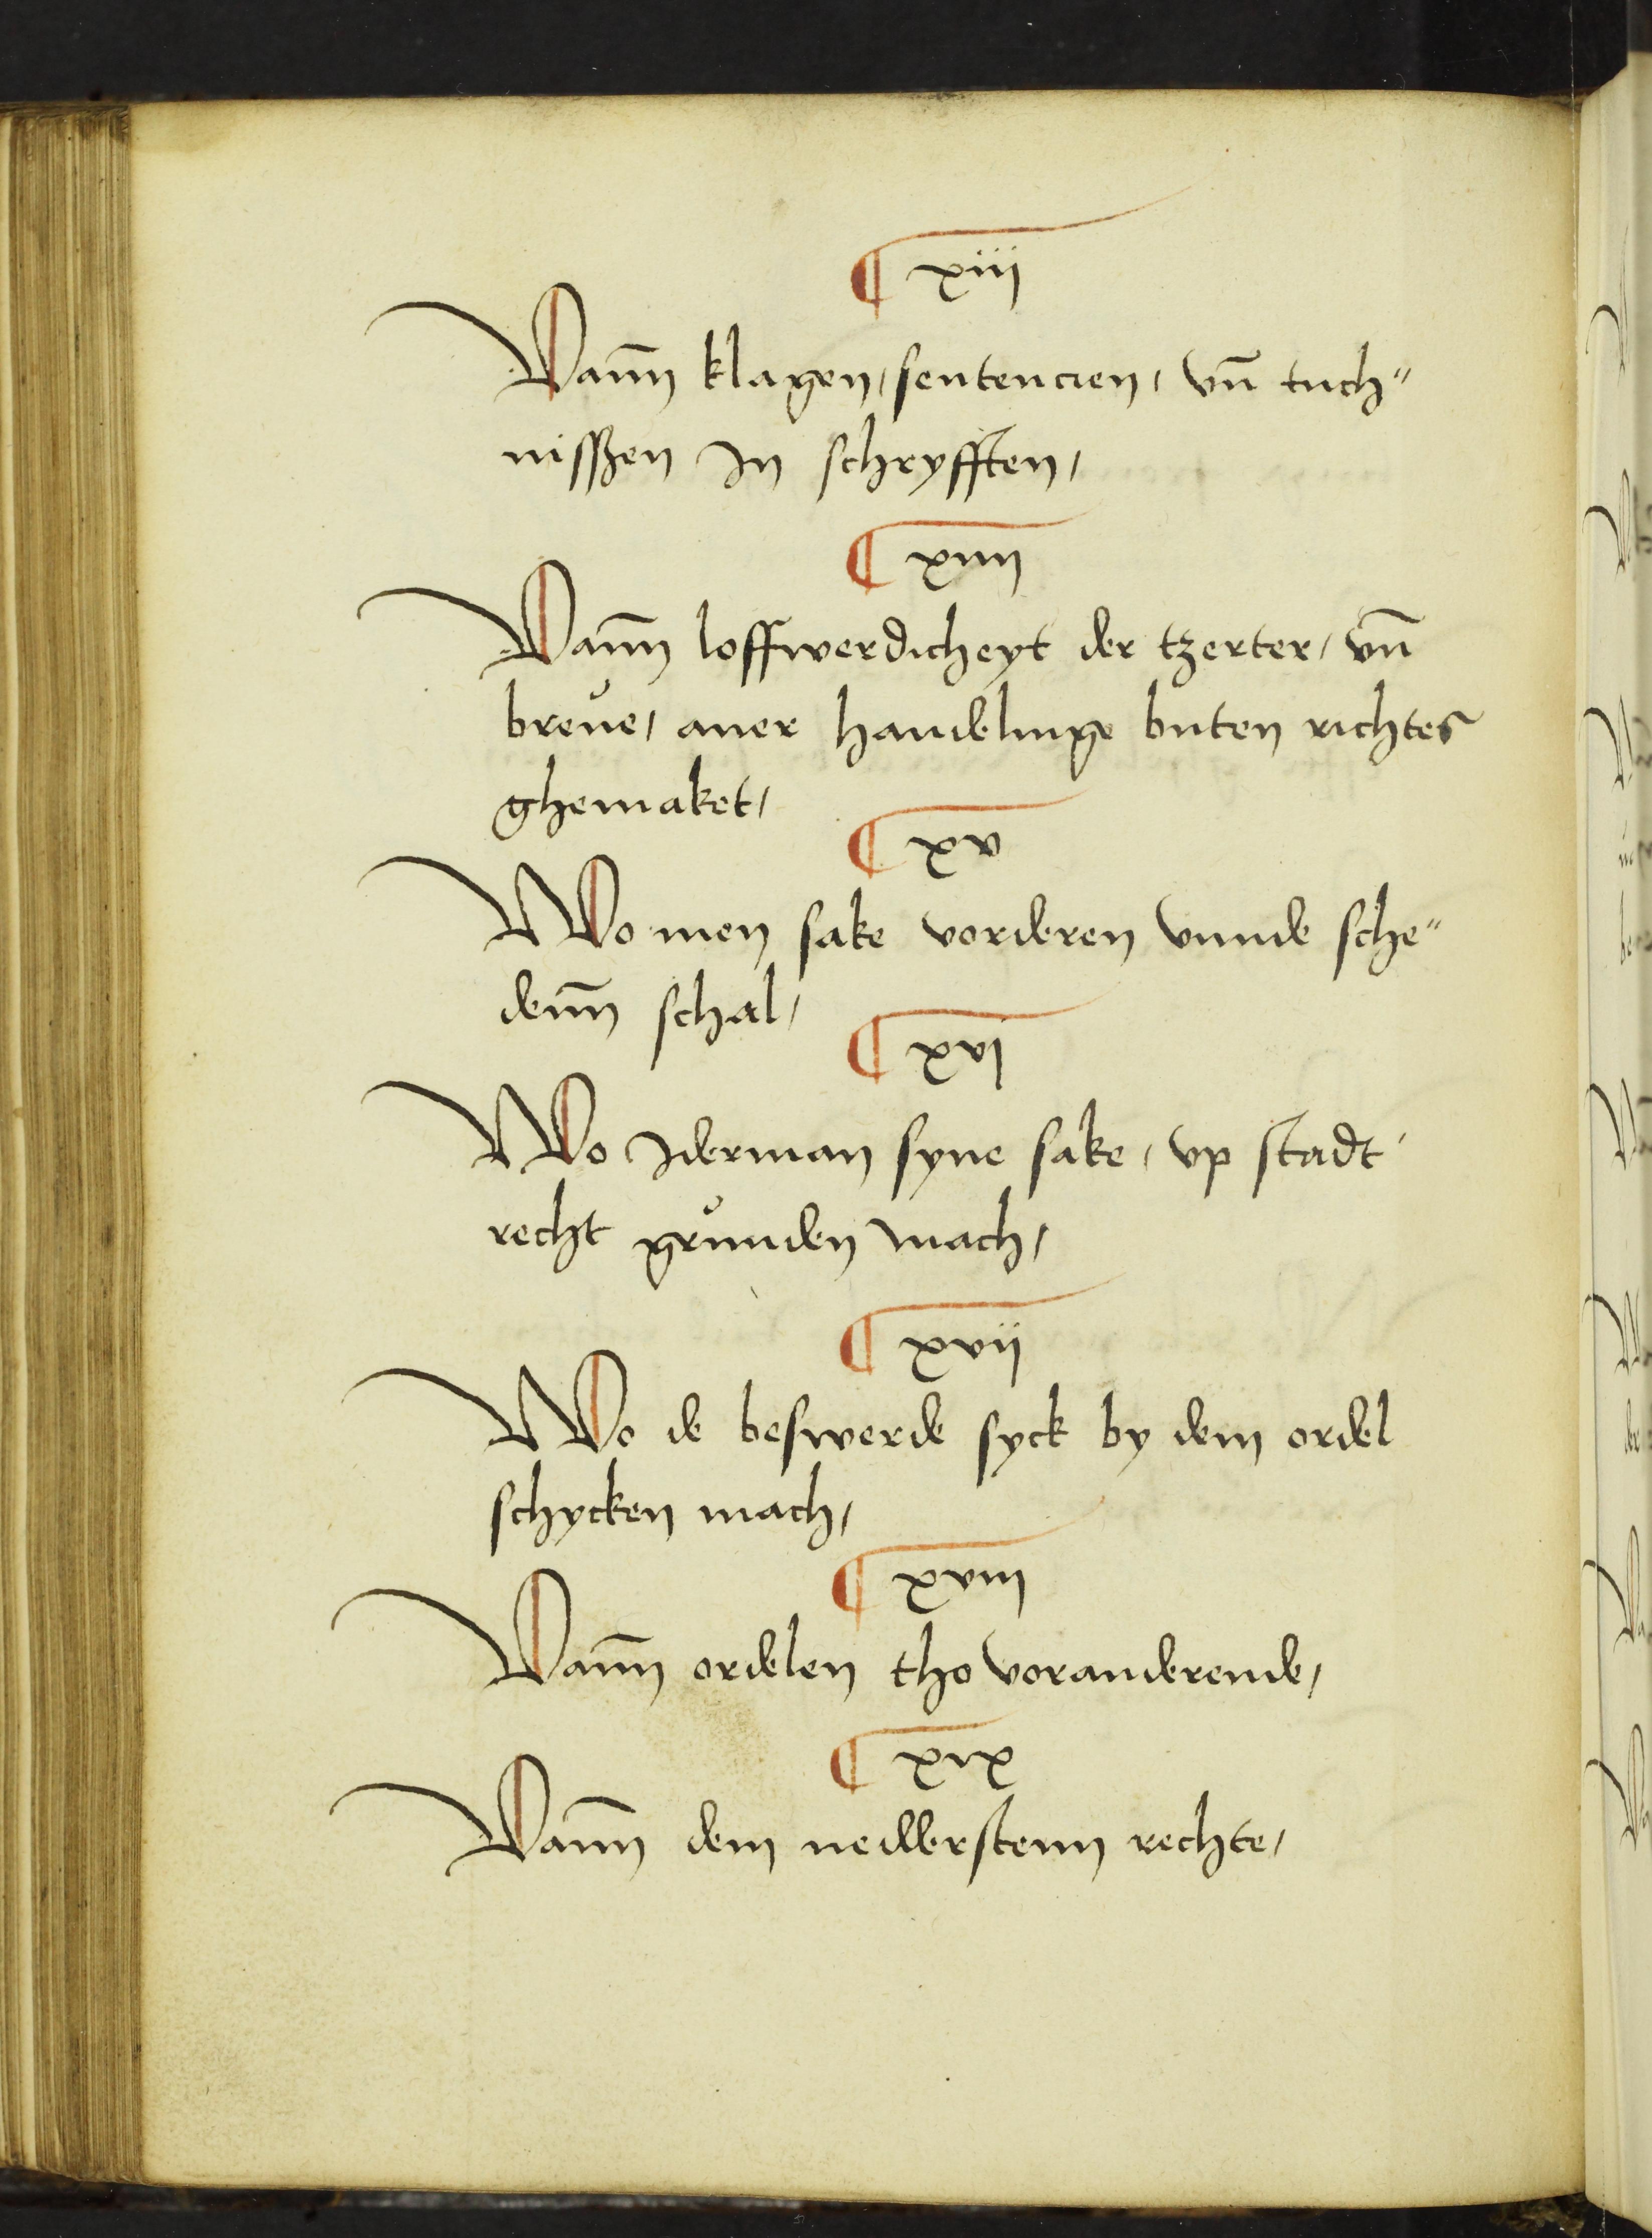 ¶ xiij
Vann̄ klagen, sentencien, vn̄ tuch"
nisszen In schryfften,
¶ xiiij
Vann̄ loffwerdicheyt der tzerter, vn̄
breůe, auer handelinge buten richtes
ghemaket,
¶ xv
Wo men sake vorderen vnnde sche"
denn̄ schal,
¶ xvj
Wo Iderman syne sake, vp stadt
recht grůnden mach,
¶ xvij
Wo de beswerde syck by dem ordel
schycken mach,
¶ xviij
Vann̄ ordelen tho voranderende,
¶ xix
Vann̄ dem nedderstenn rechte,